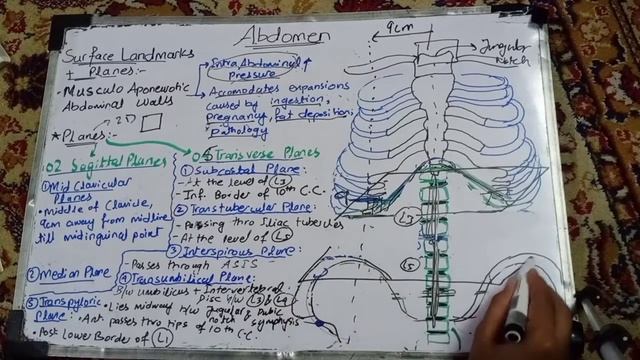 Abdomen
Surface Landmarks
+ Planes:-
• Musculo Aponewrotic
Abdominal Walls
Intra Abdominal ↑
Pressure
Accomodates expansions
caused by ingestion,
pregnancy, Fat deposition,
Pathology
* Planes:-
2D
02 Sagittal Planes
① Mid Clavicular
Planes
• middle of Clavicle,
9cm away from midline
till midinguinal point
② Median Plane
05 Transverse Planes
① Subcostal Plane:
- At the level of (L3)
- Inf. Border of 10th C.C.
② Transtubercular Plane:
- Passing thro iliac tubercles
- At the level of L5
③ Interspinous Plane:
- Passes through ASIS
④ Transumbilical Plane:
B/w umbilicus + Intervertebral
Disc b/w (L3) & L4
⑤ Transpyloric
Plane:
• Lies midway b/w Jugular & Pubic
notch symphysis
• Ant passes two tips of 10th C.C
• Post Lower Border of (L1)
9cm
Jungular
Notch
L3
L5